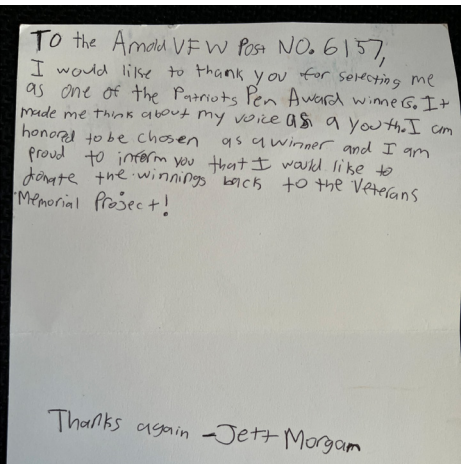 To the Arnold VFW Post NO. 6157,
I would like to thank you for selecting me
as one of the Patriots Pen Award winners. It
made me think about my voice as a youth. I am
honored to be chosen as a winner and I am
proud to inform you that I would like to
donate the winnings back to the Veterans
Memorial Project!
Thanks again - Jett Morgan